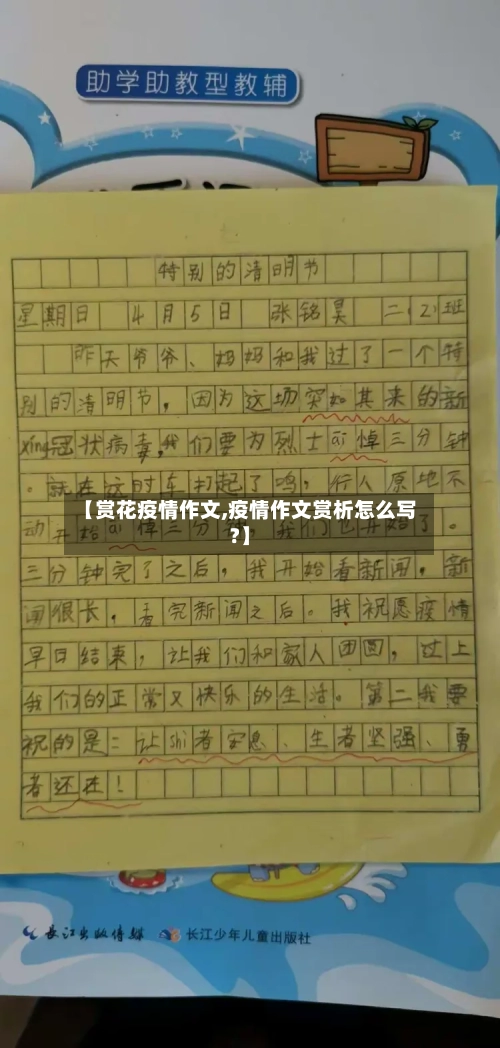 助学助教型教辅
特别的清明节
星期日 4月5日 张铭昊 二(2)班
昨天爷爷、妈妈和我过了一个特
别的清明节，因为这场突如其来的新
xíng冠状病毒，我们要为烈士āi悼三分钟
。就在这时车打起了鸣，行人原地不
【赏花疫情作文,疫情作文赏析怎么写
动开始āi悼三分钟，我们也开始了。
?】
三分钟完了之后，我开始看新闻，新
闻很长，看完新闻之后。我祝愿疫情
早日结束，让我们和家人团圆，过上
我们的正常又快乐的生活。第二我要
祝的是：让shì者安息、生者坚强、勇
者还在！
长江出版传媒 长江少年儿童出版社